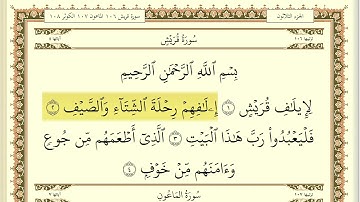 الجزء الثلاثون سورة قريش ١٠٦ الماعون ١٠٧ الكوثر ١٠٨
سُورَةُ قُرَيْشٍ
بِسْمِ اللَّهِ الرَّحْمَٰنِ الرَّحِيمِ
لِإِيلَٰفِ قُرَيْشٍ ١ إِۦلَٰفِهِمْ رِحْلَةَ الشِّتَآءِ وَالصَّيْفِ ٢
فَلْيَعْبُدُوا۟ رَبَّ هَٰذَا الْبَيْتِ ٣ الَّذِىٓ أَطْعَمَهُم مِّن جُوعٍ
وَءَامَنَهُم مِّنْ خَوْفٍۭ ٤
سُورَةُ الْمَاعُونِ